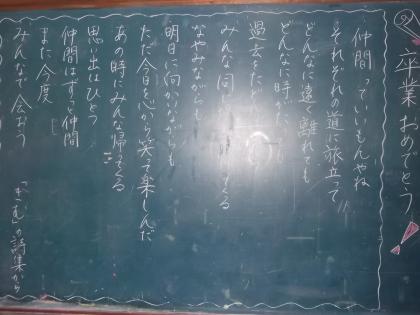 卒業おめでとう!
仲間っていいもんやね
それぞれの道へ旅立って
どんなに遠く離れても
どんなに時がた
過去をたど
みんな同じ くる
なやみながらも
明日に向かいながらも
ただ今日を心から笑って楽しんだ
あの時にみんな帰ってくる
思い出はひとつ
仲間はずっと仲間
また今度
みんなで会おう
「きむ」の詩集から